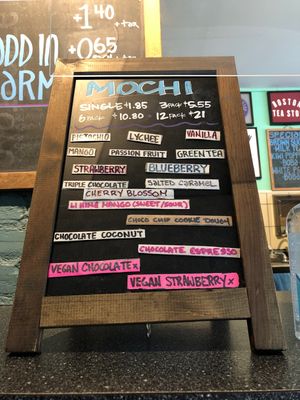 +1.40
+tax
ODD IN
+0.65
ARM
MOCHI
SINGLE +1.85 3 PACK +5.55
6 PACK +10.80 12 PACK +21
PISTACHIO LYCHEE VANILLA
MANGO PASSION FRUIT GREEN TEA
STRAWBERRY BLUEBERRY
TRIPLE CHOCOLATE SALTED CARAMEL
CHERRY BLOSSOM
LI HING MANGO (SWEET/SOUR)
CHOCO CHIP COOKIE DOUGH
CHOCOLATE COCONUT
CHOCOLATE ESPRESSO
VEGAN CHOCOLATE x
VEGAN STRAWBERRY x
BOSTON
TEA STO
SPECIA